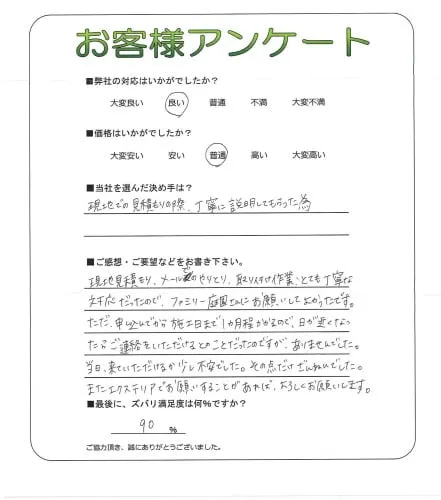 お客様アンケート
■弊社の対応はいかがでしたか？
大変良い 良い 普通 不満 大変不満
■価格はいかがでしたか？
大変安い 安い 普通 高い 大変高い
■当社を選んだ決め手は？
現地での見積もりの際、丁寧に説明してもらった為
■ご感想・ご要望などをお書き下さい。
現地見積もり、メールでのやりとり、取り付け作業、とても丁寧な
対応だったので、ファミリー庭園さんにお願いしてよかったです。
ただ、申し込んでから施工日まで1カ月程かかるので、日が近くなっ
たらご連絡をいただけるとのことだったのですが、ありませんでした。
当日、来ていただけるか少し不安でした。その点だけざんねんでした。
またエクステリアでお願いすることがあれば、よろしくお願いします。
■最後に、ズバリ満足度は何%ですか？
90 %
ご協力頂き、誠にありがとうございました。